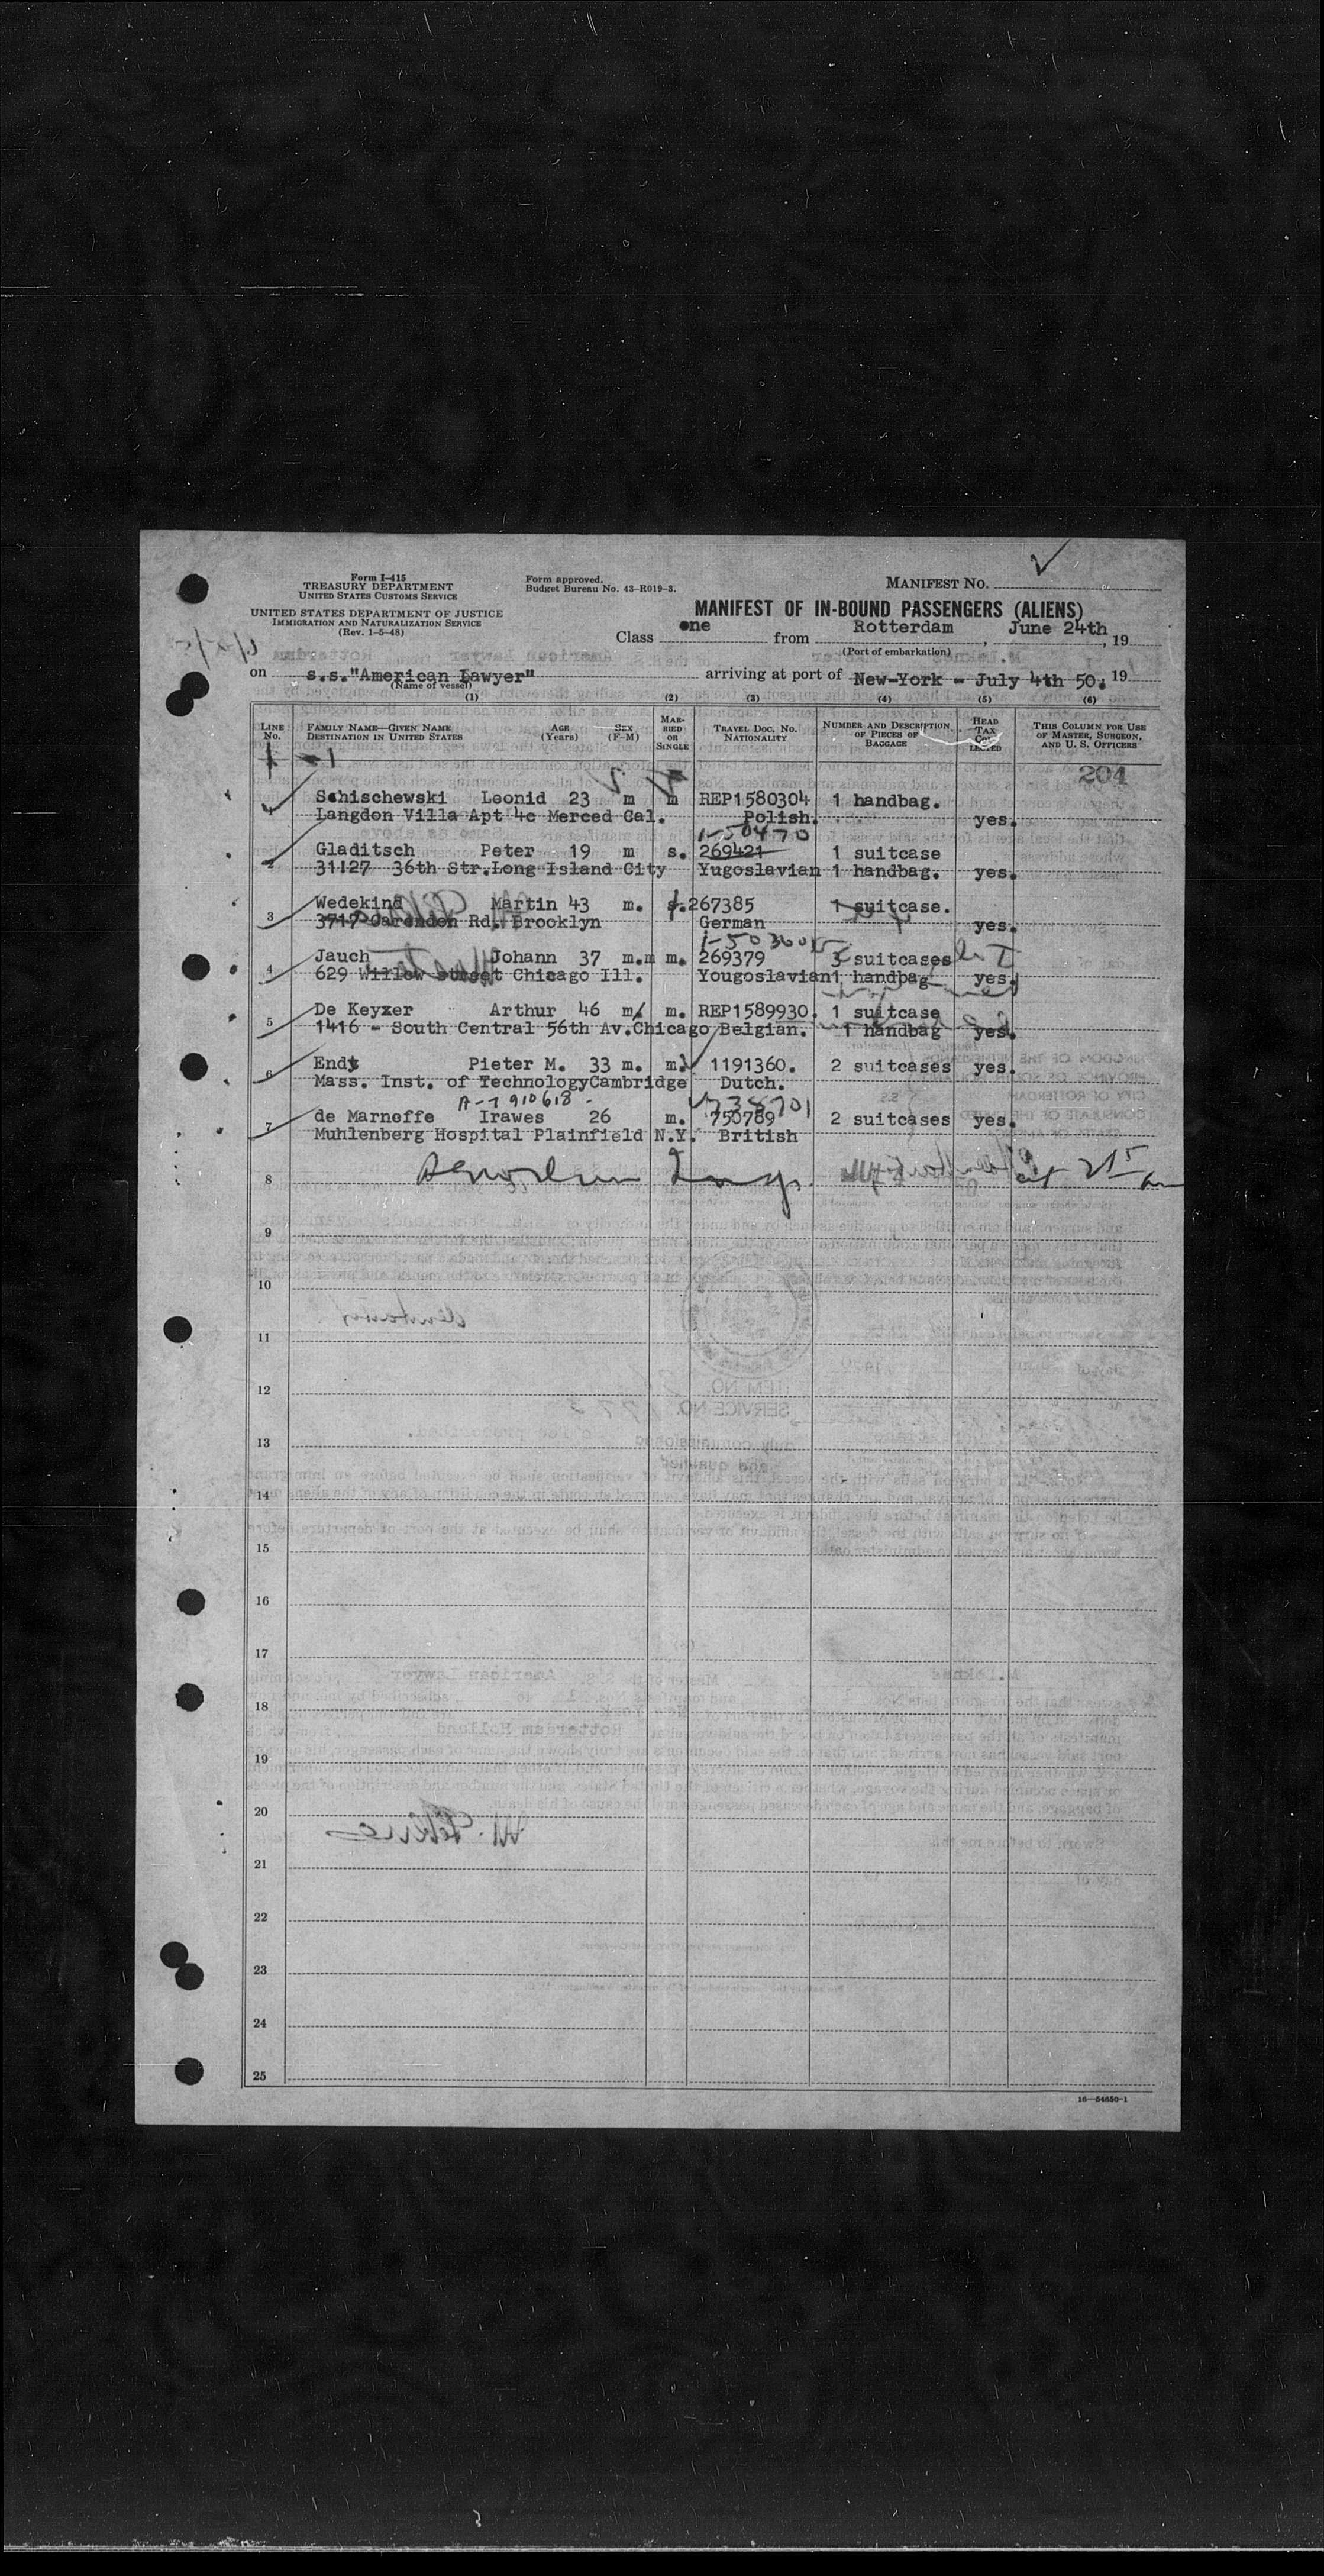 Form I-415
TREASURY DEPARTMENT
UNITED STATES CUSTOMS SERVICE
UNITED STATES DEPARTMENT OF JUSTICE
IMMIGRATION AND NATURALIZATION SERVICE
(Rev. 1-5-48)
Form approved.
Budget Bureau No. 43-R019-3.
MANIFEST NO.
MANIFEST OF IN-BOUND PASSENGERS (ALIENS)
Class one from Rotterdam, June 24th, 19
(Port of embarkation)
on s.s."American Lawyer" arriving at port of New-York - July 4th 50. 19
(Name of vessel)
(1) (2) (3) (4) (5) (6)
LINE No. FAMILY NAME—GIVEN NAME DESTINATION IN UNITED STATES AGE (Years) SEX (F-M) MARRIED OR SINGLE TRAVEL DOC. NO. NATIONALITY NUMBER AND DESCRIPTION OF PIECES OF BAGGAGE HEAD TAX COLLECTED THIS COLUMN FOR USE OF MASTER, SURGEON, AND U. S. OFFICERS
204
1 Schischewski Leonid 23 m m REP1580304 1 handbag.
Langdon Villa Apt 4c Merced Cal. Polish. yes.
1-50470
2 Gladitsch Peter 19 m s. 269421 1 suitcase
31127 36th Str.Long Island City Yugoslavian 1 handbag. yes.
3 Wedekind Martin 43 m. 267385 1 suitcase.
3717 Carenden Rd. Brooklyn German yes.
4 Jauch Johann 37 m.m m. 269379 3 suitcases
629 Willow street Chicago Ill. Yougoslavian1 handbag yes.
5 De Keyzer Arthur 46 m m. REP1589930. 1 suitcase
1416 - South Central 56th Av.Chicago Belgian. 1 handbag yes.
6 Endt Pieter M. 33 m. m. 1191360. 2 suitcases yes.
Mass. Inst. of TechnologyCambridge Dutch.
A-7910618 - V738701
7 de Marneffe Irawes 26 m. 750789 2 suitcases yes.
Muhlenberg Hospital Plainfield N.Y. British
8
9
10
11
12
13
14
15
16
17
18
19
20
21
22
23
24
25
16—54650-1